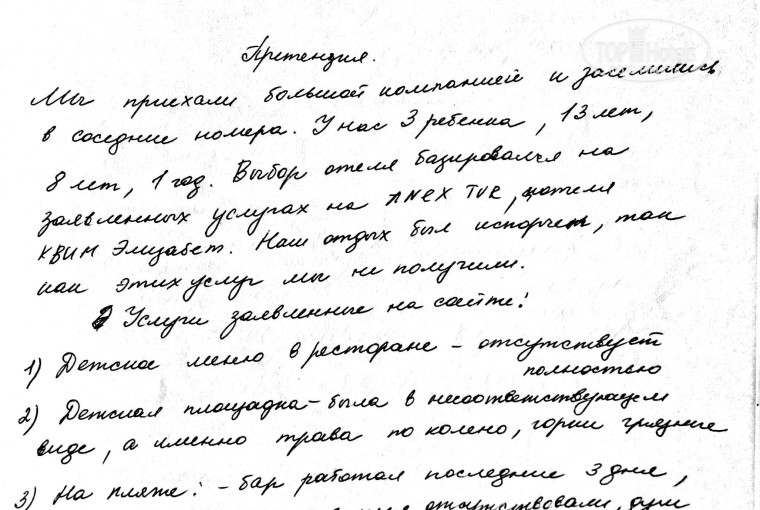 TOPHotels
Претензия.
Мы приехали большой компанией и заселились
в соседние номера. У нас 3 ребенка, 13 лет,
8 лет, 1 год. Выбор отеля базировался на
заявленных услугах на ANEX TUR, отеля
КВИН Элизабет. Наш отдых был испорчен, так
как этих услуг мы не получили.
Услуги заявленные на сайте:
1) Детское меню в ресторане – отсутствует
полностью
2) Детская площадка – была в несоответствующем
виде, а именно трава по колено, горки грязные
3) На пляже: - бар работал последние 3 дня,
отсутствовали, души